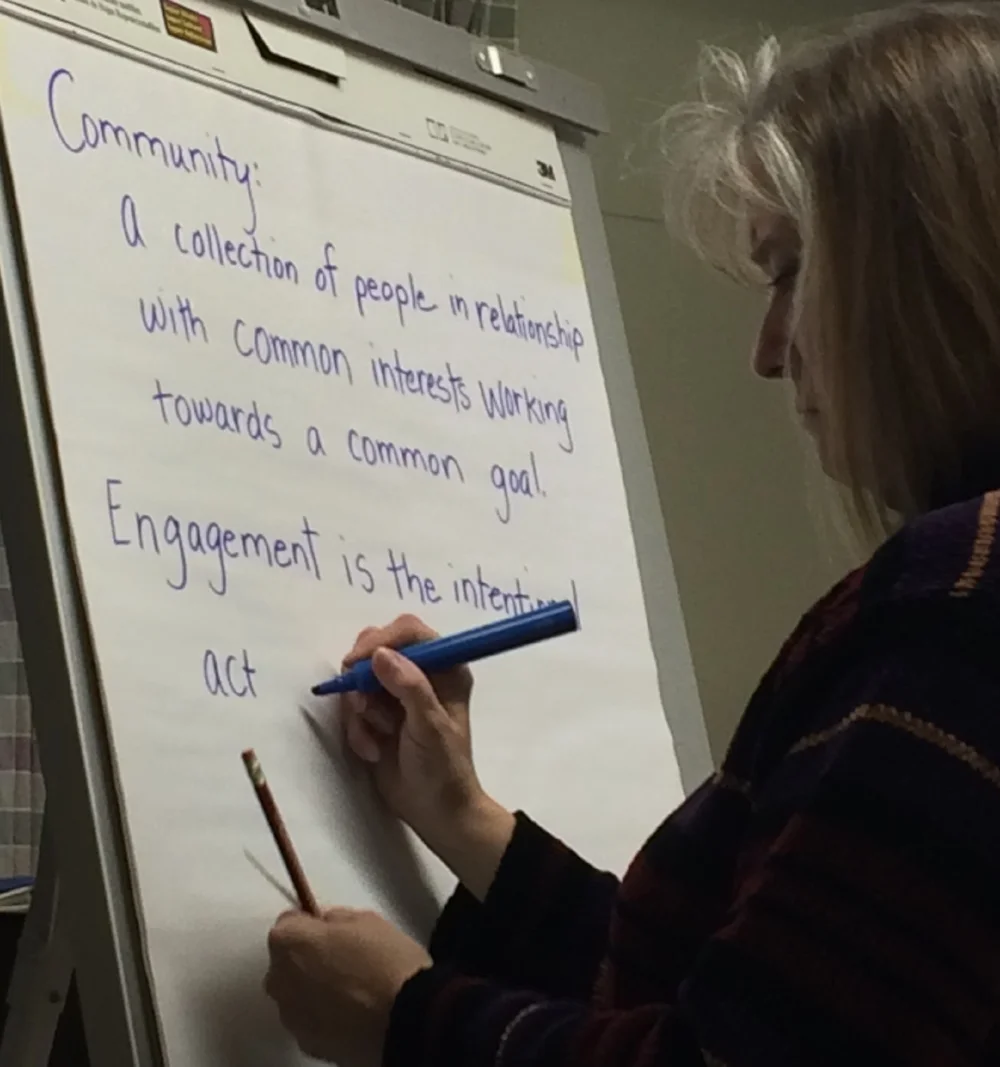 Community:
A collection of people in relationship
with common interests working
towards a common goal.
Engagement is the intentional
act
3M